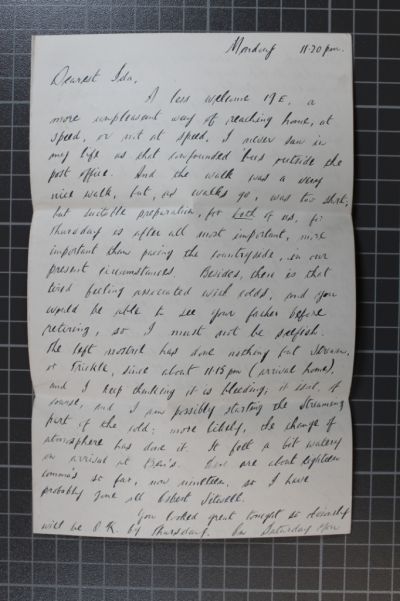 Monday 11.20 pm.
Dearest Ida,
A less welcome 19E, a
more unpleasant way of reaching home, at
speed, or not at speed, I never saw in
my life as that confounded bus outside the
post office. And the walk was a very
nice walk, but, as walks go, was too short;
but suitable preparation, for both of us, for
Thursday is after all most important, more
important than pacing the countryside, in our
present circumstances. Besides, there is that
tired feeling associated with colds, and you
would be able to see your father before
retiring, so I must not be selfish.
The left nostril has done nothing but stream,
or trickle, since about 11.15 pm (arrival home),
and I keep thinking it is bleeding; it isn't, of
course, and I am possibly starting the streaming
part of the cold; more likely, the change of
atmosphere has done it. It felt a bit watery
on arrival at There are about eighteen
comma's so far, now nineteen, so I have
probably gone all Osbert Sitwell.
You looked great tonight so
will be O.K. by Thursday. On Saturday